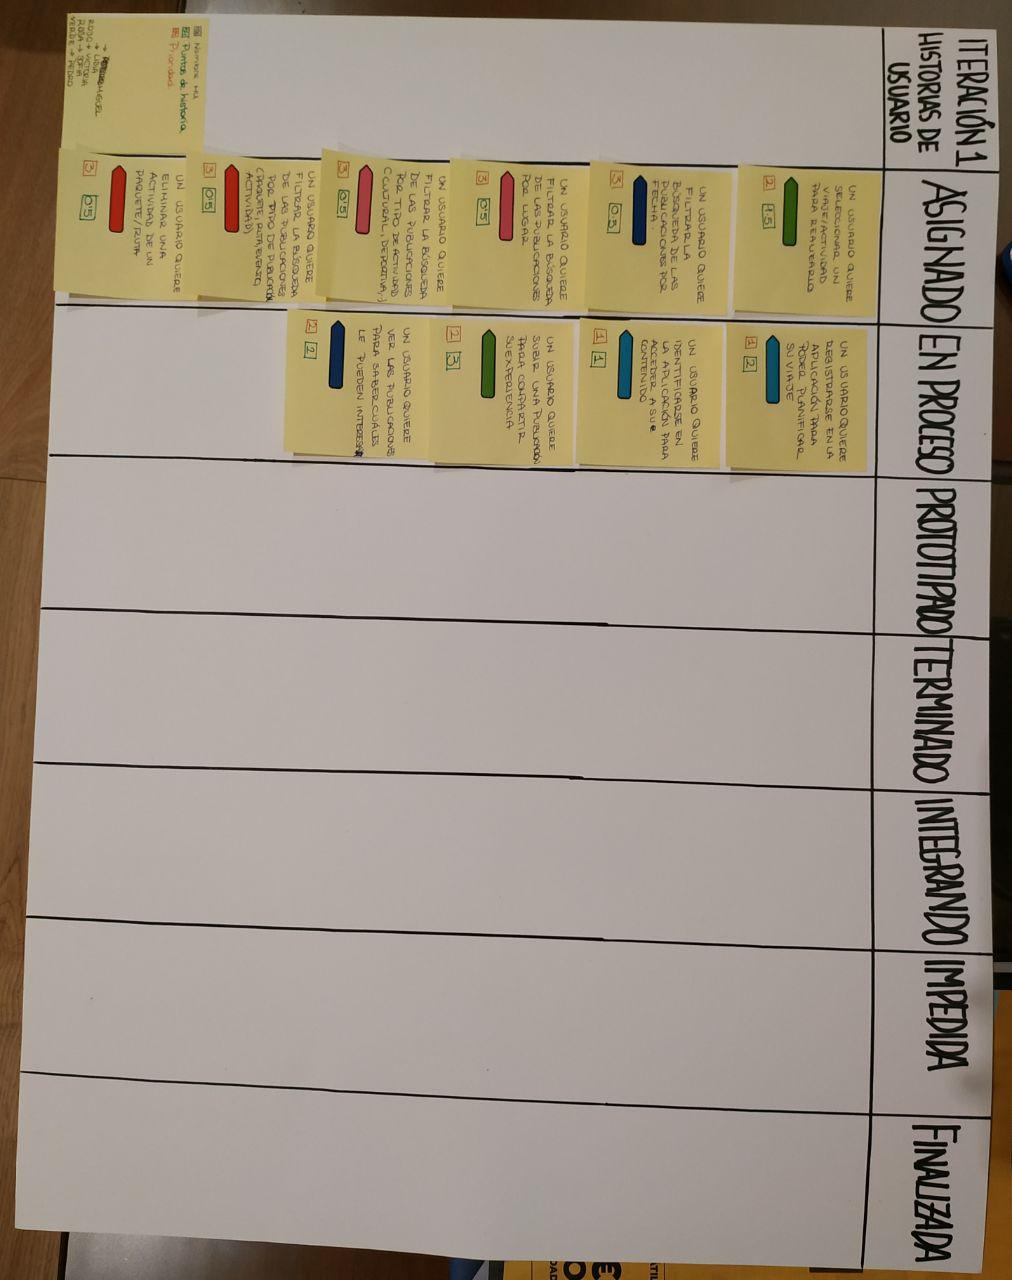 ITERACIÓN 1
HISTORIAS DE
USUARIO
ASIGNADO
EN PROCESO
PROTOTIPADO
TERMINADO
INTEGRANDO
IMPEDIDA
FINALIZADA
UN USUARIO QUIERE
SELECCIONAR UN
VIAJE/ACTIVIDAD
PARA REALIZARLO
2 1.5
UN USUARIO QUIERE
FILTRAR LA
BÚSQUEDA DE LAS
PUBLICACIONES POR
FECHA.
3 0.5
UN USUARIO QUIERE
FILTRAR LA BÚSQUEDA
DE LAS PUBLICACIONES
POR LUGAR
3 0'5
UN USUARIO QUIERE
FILTRAR LA BÚSQUEDA
DE LAS PUBLICACIONES
POR TIPO DE ACTIVIDAD
(CULTURAL, DEPORTIVA,..)
3 0'5
UN USUARIO QUIERE
FILTRAR LA BÚSQUEDA
DE LAS PUBLICACIONES
POR TIPO DE PUBLICACIÓN
(PAQUETE, RUTA, EVENTO,
ACTIVIDAD)
3 0'5
UN USUARIO QUIERE
ELIMINAR UNA
ACTIVIDAD DE UN
PAQUETE/RUTA
3 0'5
UN USUARIO QUIERE
REGISTRARSE EN LA
APLICACIÓN PARA
PODER PLANIFICAR
SU VIAJE
1 2
UN USUARIO QUIERE
IDENTIFICARSE EN
LA APLICACIÓN PARA
ACCEDER A SU
CONTENIDO
1 1
UN USUARIO QUIERE
SUBIR UNA PUBLICACIÓN
PARA COMPARTIR
SU EXPERIENCIA
2 3
UN USUARIO QUIERE
VER LAS PUBLICACIONES
PARA SABER CUÁLES
LE PUEDEN INTERESAR
2 2
Nombre HU
Puntos de historia
Prioridad
→ MIGUEL
→ LIDIA
ROJO → VICTORIA
ROSA → SOFÍA
VERDE → PEDRO